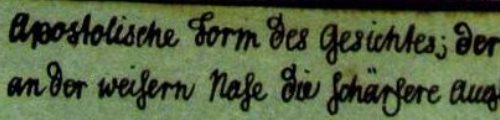 Apostolische Form des Gesichtes; der
an der weisern Nase die schärfere Aus